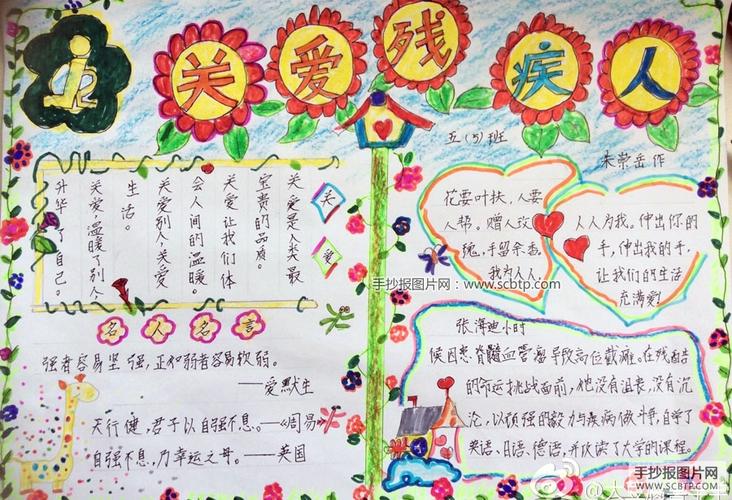 关爱残疾人
五(5)班
朱崇岳作
关爱是人类最
宝贵的品质。
关爱让我们体
会人间的温暖。
关爱别人关爱
生活。
关爱，温暖了别人，
升华了自己。
关
爱
名人名言
强者容易坚强，正如弱者容易软弱。
——爱默生
天行健，君子以自强不息。——《周易》
自强不息，乃幸运之母。——英国
花要叶扶，人要
人帮，赠人玫
瑰，手留余香。
我为人人，
人人为我。伸出你的
手，伸出我的手，
让我们的生活
充满爱！
手抄报图片网：www.scbtp.com
张海迪小时
候因患脊髓血管瘤导致高位截瘫。在残酷
的命运挑战面前，他没有沮丧，没有沉
沦，以顽强的毅力与疾病做斗争，自学了
英语、日语、德语，并攻读了大学的课程。
手抄报图片网
WWW.SCBTP.COM